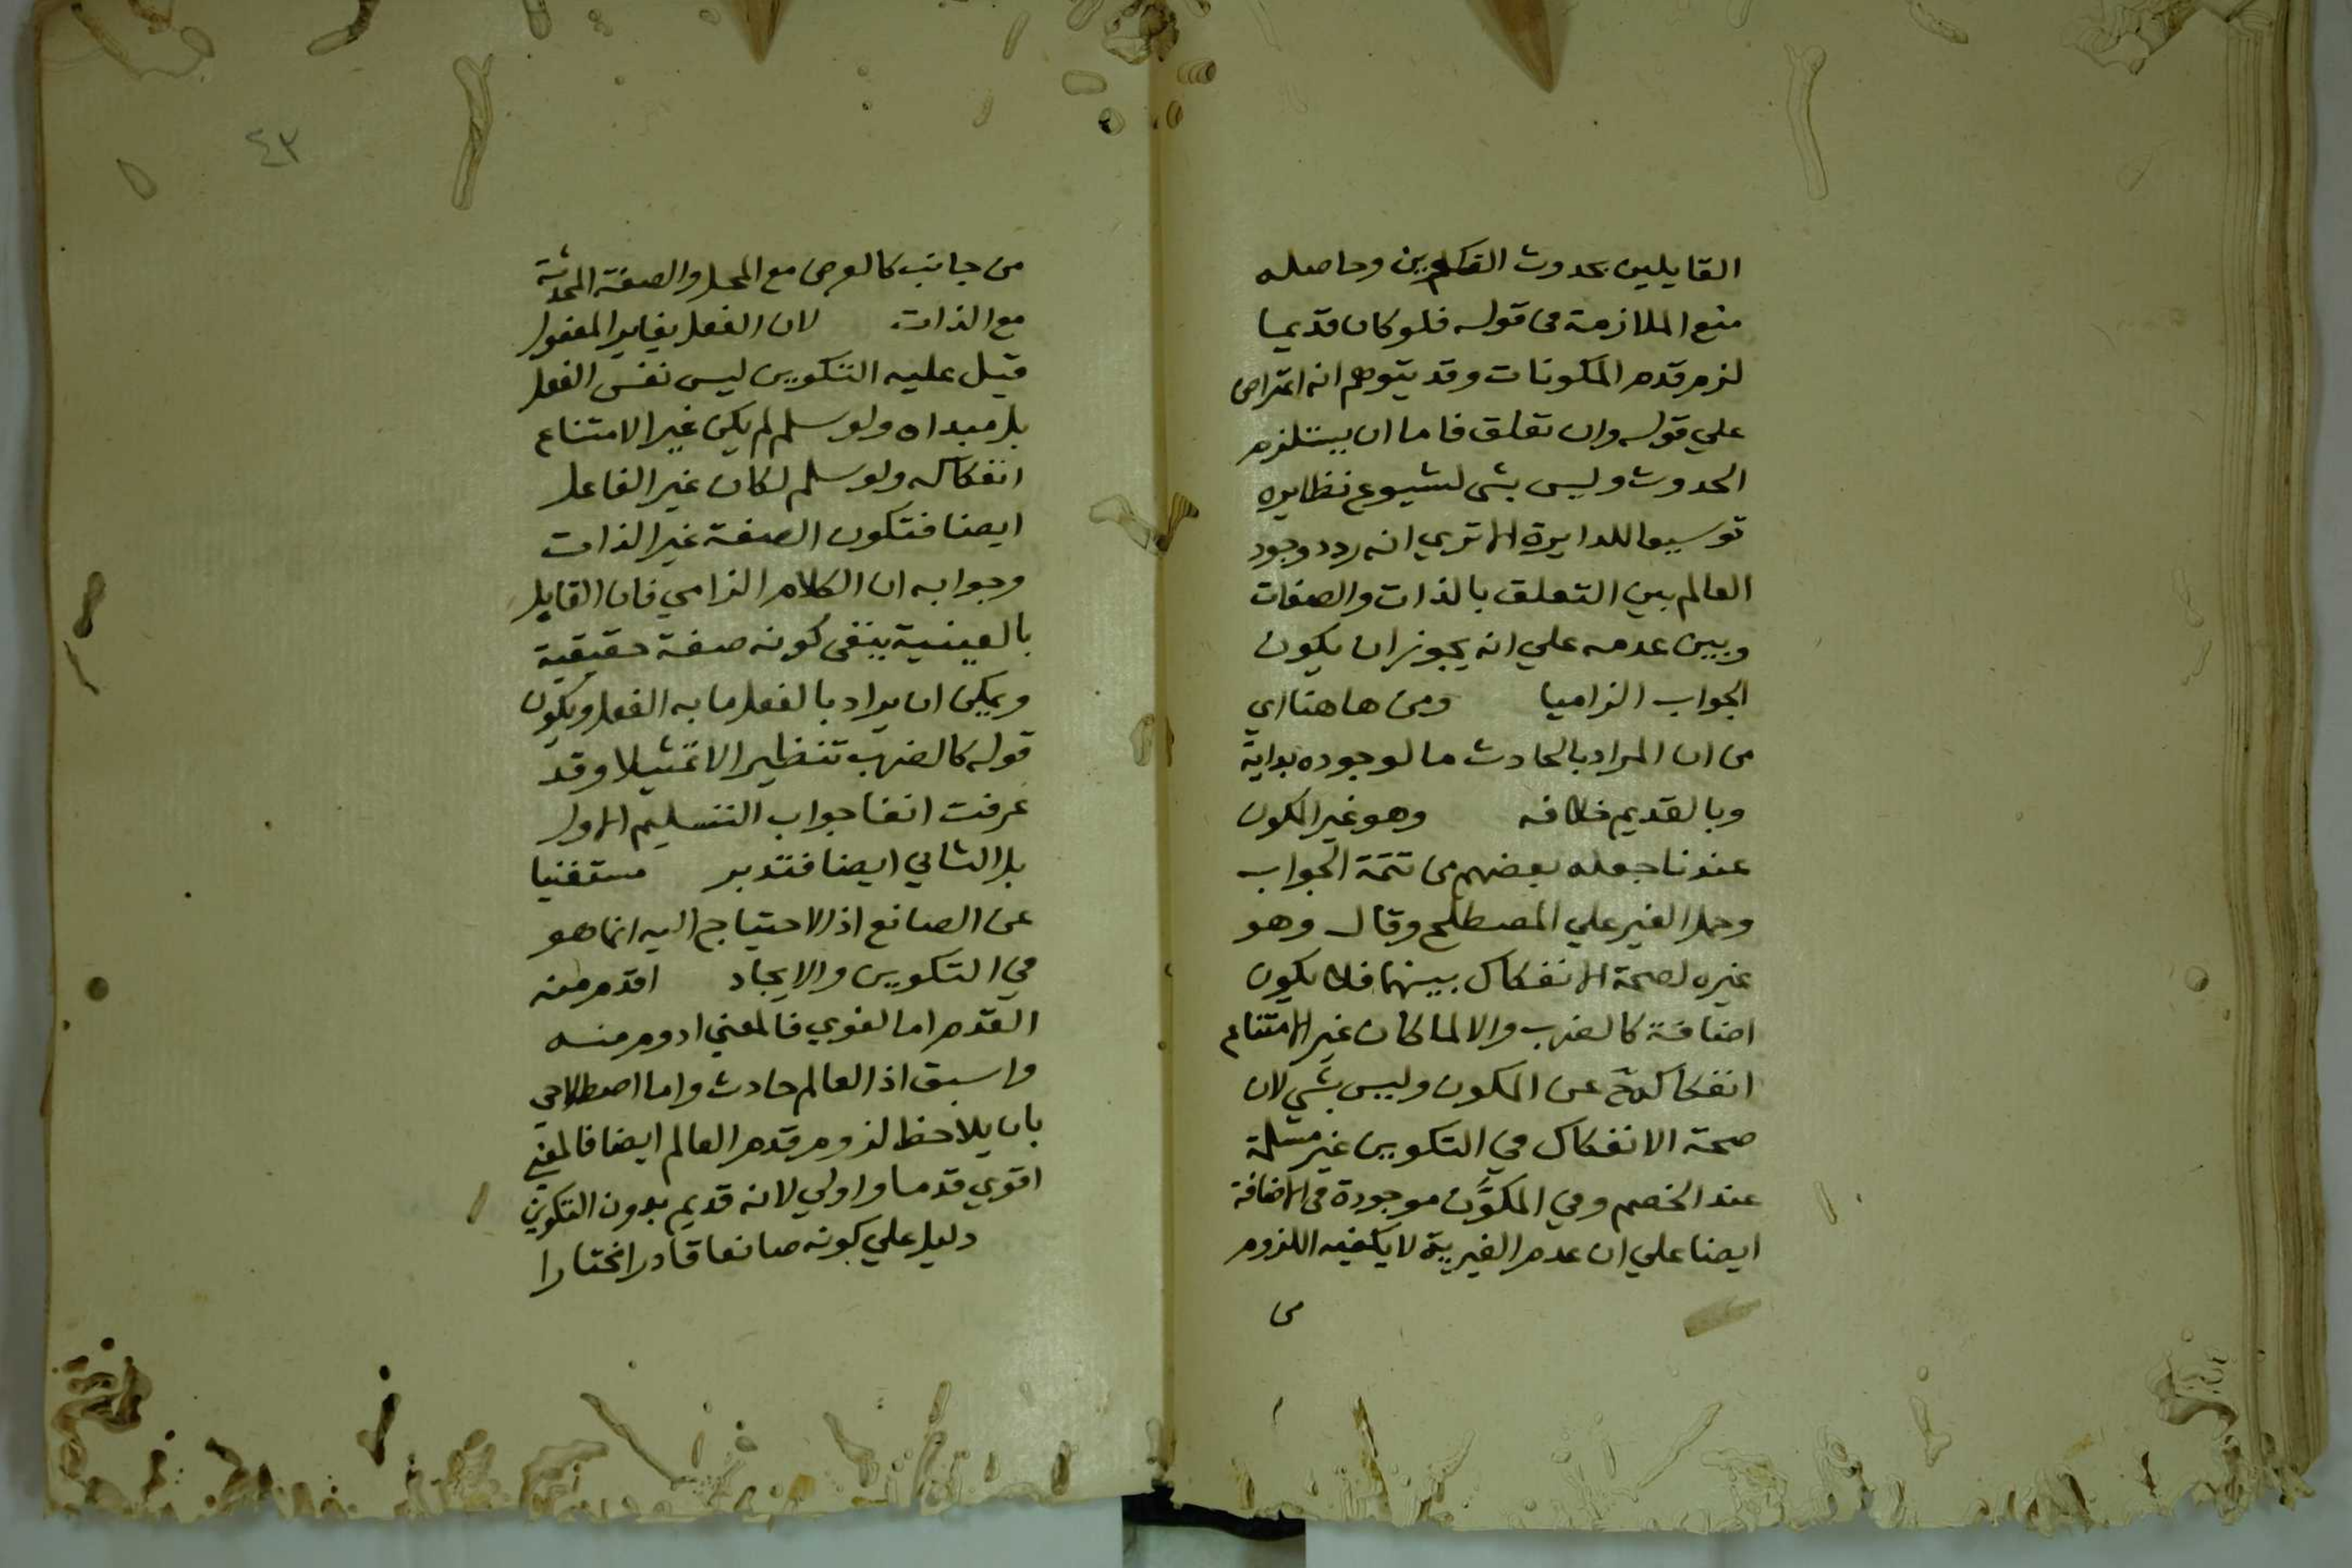 القايلين بحدوث التكوين وحاصله
منع الملازمة في قوله فلو كان قديما
لزم قدم المكونات وقد يتوهم انه اعتراض
علي قوله وان تعلق فاما ان يستلزم
الحدوث وليس بشي لشيوع نظايره
توسيعا للدايرة الا تري انه ردد وجود
العالم بين التعلق بالذات والصفات
وبين عدمه علي انه يجوز ان يكون
الجواب الزاميا ومن هاهنا اي
من ان المراد بالحادث ما لوجوده بداية
وبالقديم خلافه وهو غير المكون
عندنا جعله بعضهم من تتمة الجواب
وحمل الغير علي المصطلح وقال وهو
غيره لصحة الانفكاك بينهما فلا يكون
اضافة كالضرب والا لما كان غير الامتناع
انفكاكه ح عن المكون وليس بشي لان
صحة الانفكاك في التكوين غير مسلمة
عند الخصم وفي المكوَّن موجودة في الاضافة
ايضا علي ان عدم الغيرية لا يكفيه اللزوم
من
٤٣
من جانب كالعرض مع المحل والصفة المحدثة
مع الذات لان الفعل يغاير المفعول
قيل عليه التكوين ليس نفس الفعل
بل مبداه ولو سلم لم يكن غير الامتناع
انفكاكه ولو سلم لكان غير الفاعل
ايضا فتكون الصفة غير الذات
وجوابه ان الكلام الزامي فان القايل
بالعينية ينفي كونه صفة حقيقية
ويمكن ان يراد بالفعل ما به الفعل ويكون
قوله كالضرب تنظيرا لا تمثيلا وقد
عرفت انفا جواب التسليم الاول
بل الثاني ايضا فتدبر مستغنيا
عن الصانع اذ الاحتياج اليه انما هو
في التكوين والايجاد اقدم منه
القدم اما لغوي فالمعني ادوم منه
واسبق اذ العالم حادث واما اصطلاحي
بان يلاحظ لزوم قدم العالم ايضا فالمعني
اقوي قدما واولي لانه قديم بدون التكوين
دليل علي كونه صانعا قادرا مختارا